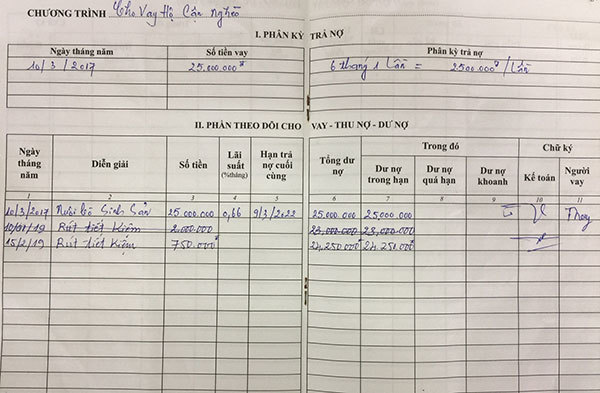 CHƯƠNG TRÌNH Cho Vay Hộ Cận Nghèo
I. PHÂN KỲ TRẢ NỢ
Ngày tháng năm Số tiền vay Phân kỳ trả nợ
10/3/2017 25.000.000đ 6 tháng 1 Lần = 2500.000đ/Lần
II. PHẦN THEO DÕI CHO VAY - THU NỢ - DƯ NỢ
Ngày tháng năm Diễn giải Số tiền Lãi suất (%tháng) Hạn trả nợ cuối cùng Tổng dư nợ Trong đó Chữ ký
Dư nợ trong hạn Dư nợ quá hạn Dư nợ khoanh Kế toán Người vay
1 2 3 4 5 6 7 8 9 10 11
10/3/2017 Nuôi bò Sinh Sản 25.000.000 0,66 9/3/2022 25.000.000 25,000.000 Thay
/19 Rút tiết Kiệm 2.000.000 23.000.000 23,000.000
15/2/19 Rút tiết Kiệm 750.000đ 24,250.000đ 24.250.000đ